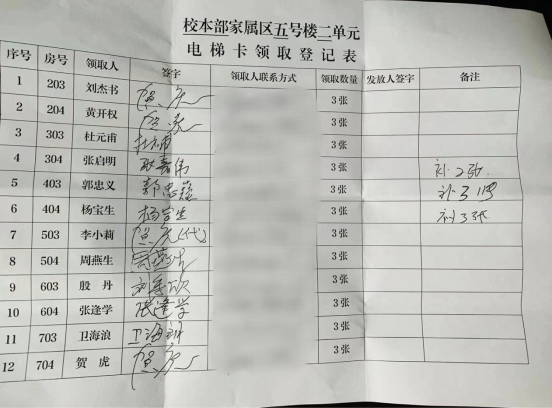 校本部家属区五号楼二单元
电梯卡领取登记表
序号 房号 领取人 签字 领取人联系方式 领取数量 发放人签字 备注
1 203 刘杰书 3张
2 204 黄开权 3张
3 303 杜元甫 杜元甫 3张
4 304 张启明 耿喜伟 3张 补2张
5 403 郭忠义 郭忠义 3张 补3
6 404 杨宝生 杨宝生 3张 补3张
7 503 李小莉 (代) 3张
8 504 周燕生 周燕生 3张
9 603 殷丹 3张
10 604 张逢学 张逢学 3张
11 703 卫海浪 卫海浪 3张
12 704 贺虎 3张